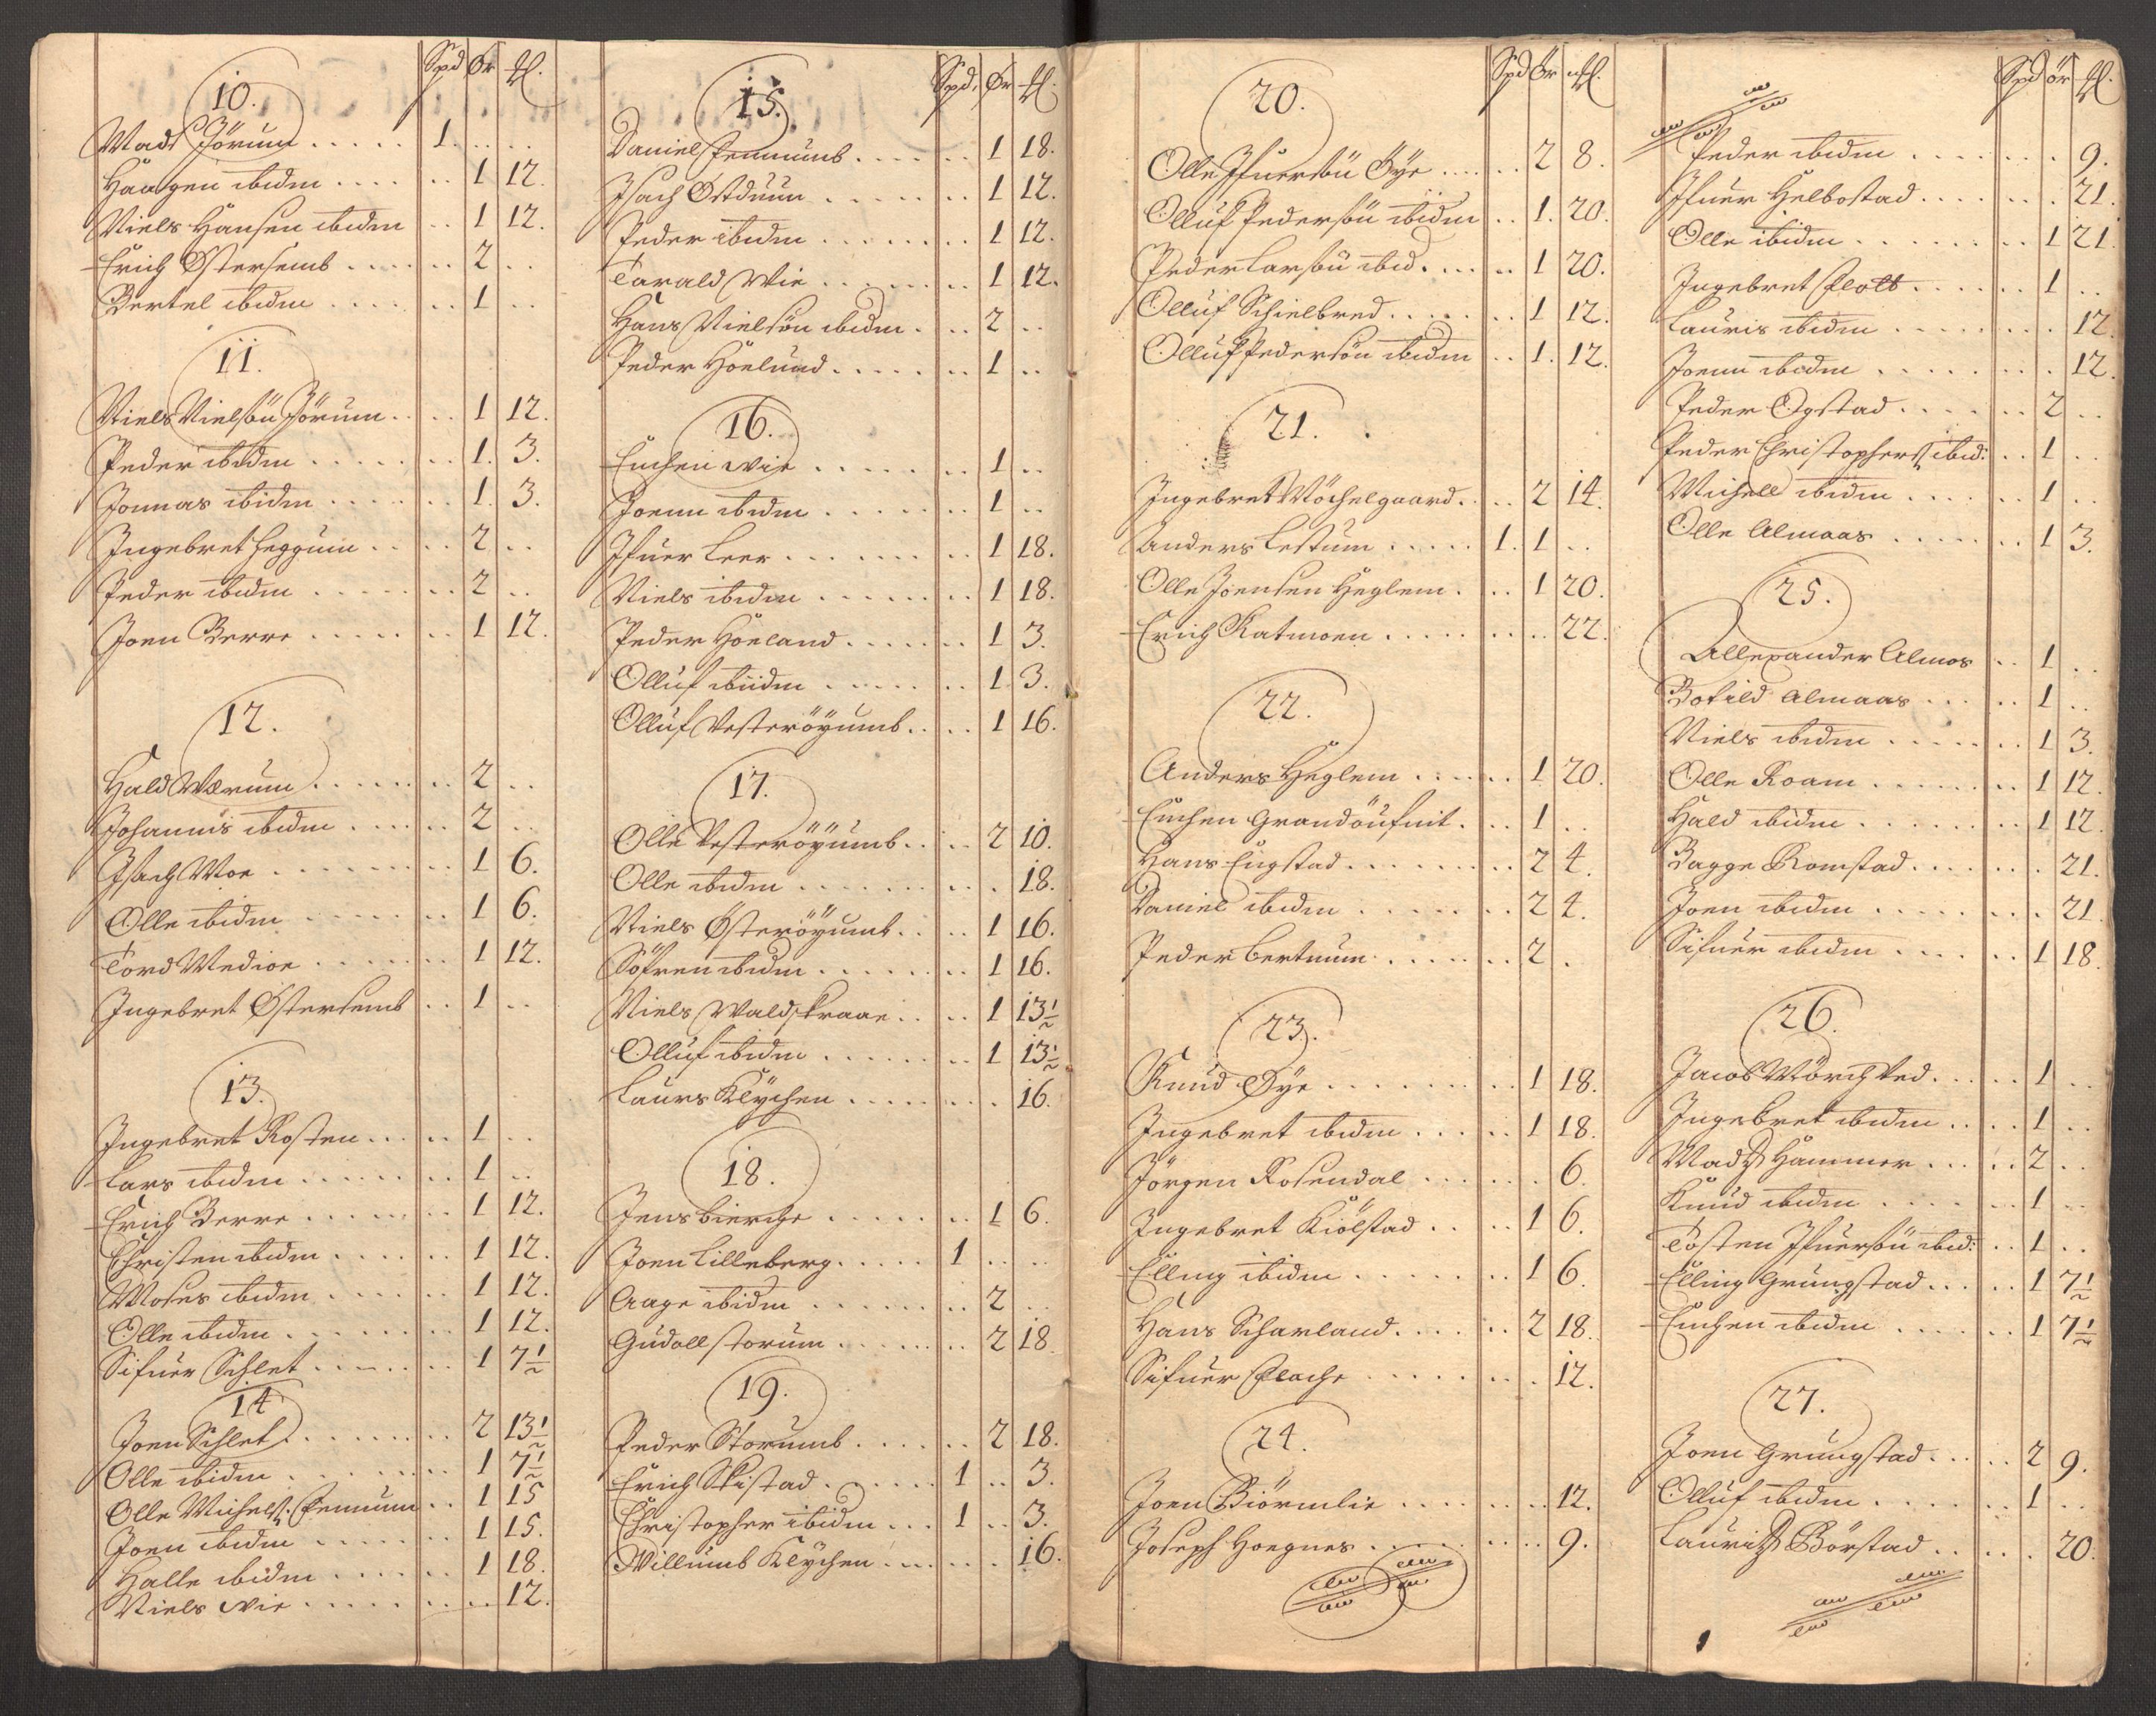 Spd Ör ₰.
10.
Mads Jörum ..... 1. . . .
Haagen ibidm .... .. 1 12.
Niels Hansen ibidm .. 1 12.
Erich Östersemb .... .. 2 ..
Bertel ibidm ..... .. 1 ..
11.
Niels Nielsön Jörum .. .. 1 12.
Peder ibidm ..... .. 1. 3.
Jonnas ibidm ..... .. 1. 3.
Ingebret Heggum .. .. 2 ..
Peder ibidm ..... .. 2 ..
Joen Berre ..... .. 1 12.
12.
Hald Wærum ..... .. 2 ..
Johannis ibidm .... .. 2 ..
Isach Moe ..... .. 1 6.
Olle ibidm ..... .. 1 6.
Tord Medioe ..... .. 1 12.
Ingebret Östersemb .. 1 ..
13.
Ingebret Rosten .... .. 1 ..
Lars ibidm ..... .. 1 ..
Erich Berre ..... .. 1 12.
Christen ibidm .... .. 1 12.
Moses ibidm ..... .. 1 12.
Olle ibidm ..... .. 1 12.
Sifuer Schlet ..... .. 1 7½
14
Joen Schlet ..... .. 2 13½
Olle ibidm ..... .. 1 7½
Olle Michels: Fennum .. 1 15
Joen ibidm ..... .. 1 15.
Halle ibidm ..... .. 1 18.
Niels Wie ..... .. .. 12.
Spd. Ör ₰.
15.
Daniel Fennumb .... .. 1 18.
Isach Östduun ..... .. 1 12.
Peder ibidm ..... .. 1 12.
Tarald Wie ..... .. 1 12.
Hans Nielsön ibidm . .. 2 ..
Peder Höelund ..... .. 1 ..
16.
Enchen Wie ..... .. 1 ..
Joenn ibidm ..... .. 1 ..
Ifuer Leer ..... .. 1 18.
Niels ibidm ..... .. 1 18.
Peder Höeland ..... .. 1 3.
Olluf ibidm ..... .. 1 3.
Olluf Vesteröyumb .. .. 1 16.
17.
Olle Vesteröyumb .. .. 2 10.
Olle ibidm ..... .. . 18.
Niels Österöyumb .. .. 1 16.
Söfren ibidm ..... .. 1 16.
Niels Waldskraae .. .. 1 13½
Olluf ibidm ..... .. 1 13½
Laurs Klychen ..... .. . 16.
18.
Jens Bierche ..... .. 1 6.
Joen Lilleberg ..... 1 .. ..
Aage ibidm ..... .. 2 ..
Gudall Storum ..... .. 2 18.
19.
Peder Storumb ..... .. 2 18.
Erich Skistad ..... 1 .. 3.
Christopher ibidm ... 1 .. 3.
Willumb Klychen .... .. . 16.
Spd Ör ₰.
20.
Olle Ifuersön Öye .... .. 2 8.
Olluf Pedersön ibidm .. 1. 20.
Peder Larsön ibid. ... .. 1 20.
Olluf Schielbred .... .. 1 12.
Olluf Pedersön ibidm .. 1. 12.
21.
Ingebret Möchelgaard .. .. 2 14.
Anders Lestum ..... 1. 1 ..
Olle Joensen Heglem . .. 1 20.
Erich Katmoen ..... .. .. 22.
22.
Anders Heglem .... .. 1 20.
Enchen Grandöufnit . .. 1 ..
Hans Eugstad ..... .. 2 4.
Daniel ibidm ..... .. 2 4.
Peder Bertnum ..... .. 2 .
23.
Knud Öye ..... .. 1 18.
Ingebret ibidm .... .. 1 18.
Jörgen Rosendal .... .. . 6.
Ingebret Kiölstad .. .. 1 6.
Elling ibidm ..... .. 1 6.
Hans Scharland .... .. 2 18.
Sifuer Flache ..... .. . 12.
24.
Joen Biörnlie ..... .. .. 12.
Joseph Hoegnes ..... .. .. 9.
Spd ör ₰.
Peder ibidm ..... .. . 9.
Ifuer Helbostad .... .. . 21.
Olle ibidm ..... .. 1 21.
Ingebret Flott .... .. 1 ..
Lauris ibidm ..... .. . 12.
Joenn ibidm ..... .. . 12.
Peder Ogstad ..... .. 2 ..
Peder Christophers: ibid: .. 1 ..
Michell ibidm .... .. 1 ..
Olle Almaas ..... .. 1 3.
25.
Allexander Almos .. 1 ..
Botild Almaas .... .. 1 ..
Niels ibidm ..... .. 1 3.
Olle Roam ..... .. 1 12.
Hald ibidm ..... .. 1 12.
Bagge Romstad .... .. . 21.
Joen ibidm ..... .. . 21.
Sifuer ibidm .... .. 1 18.
26.
Jacob Mörchved .... .. 1 ..
Ingebret ibidm .. .. 1 ..
Madtz Hammer .... .. 2 ..
Knud ibidm ..... .. 1 ..
Tosten Ifuersön ibid: .. 1 ..
Elling Grungstad ... .. 1 7½
Enchen ibidm .... .. 1 7½
27.
Joen Grungstad ... .. 2 9.
Olluf ibidm ..... .. 1 ..
Lauritz Börstad .. .. . 20.